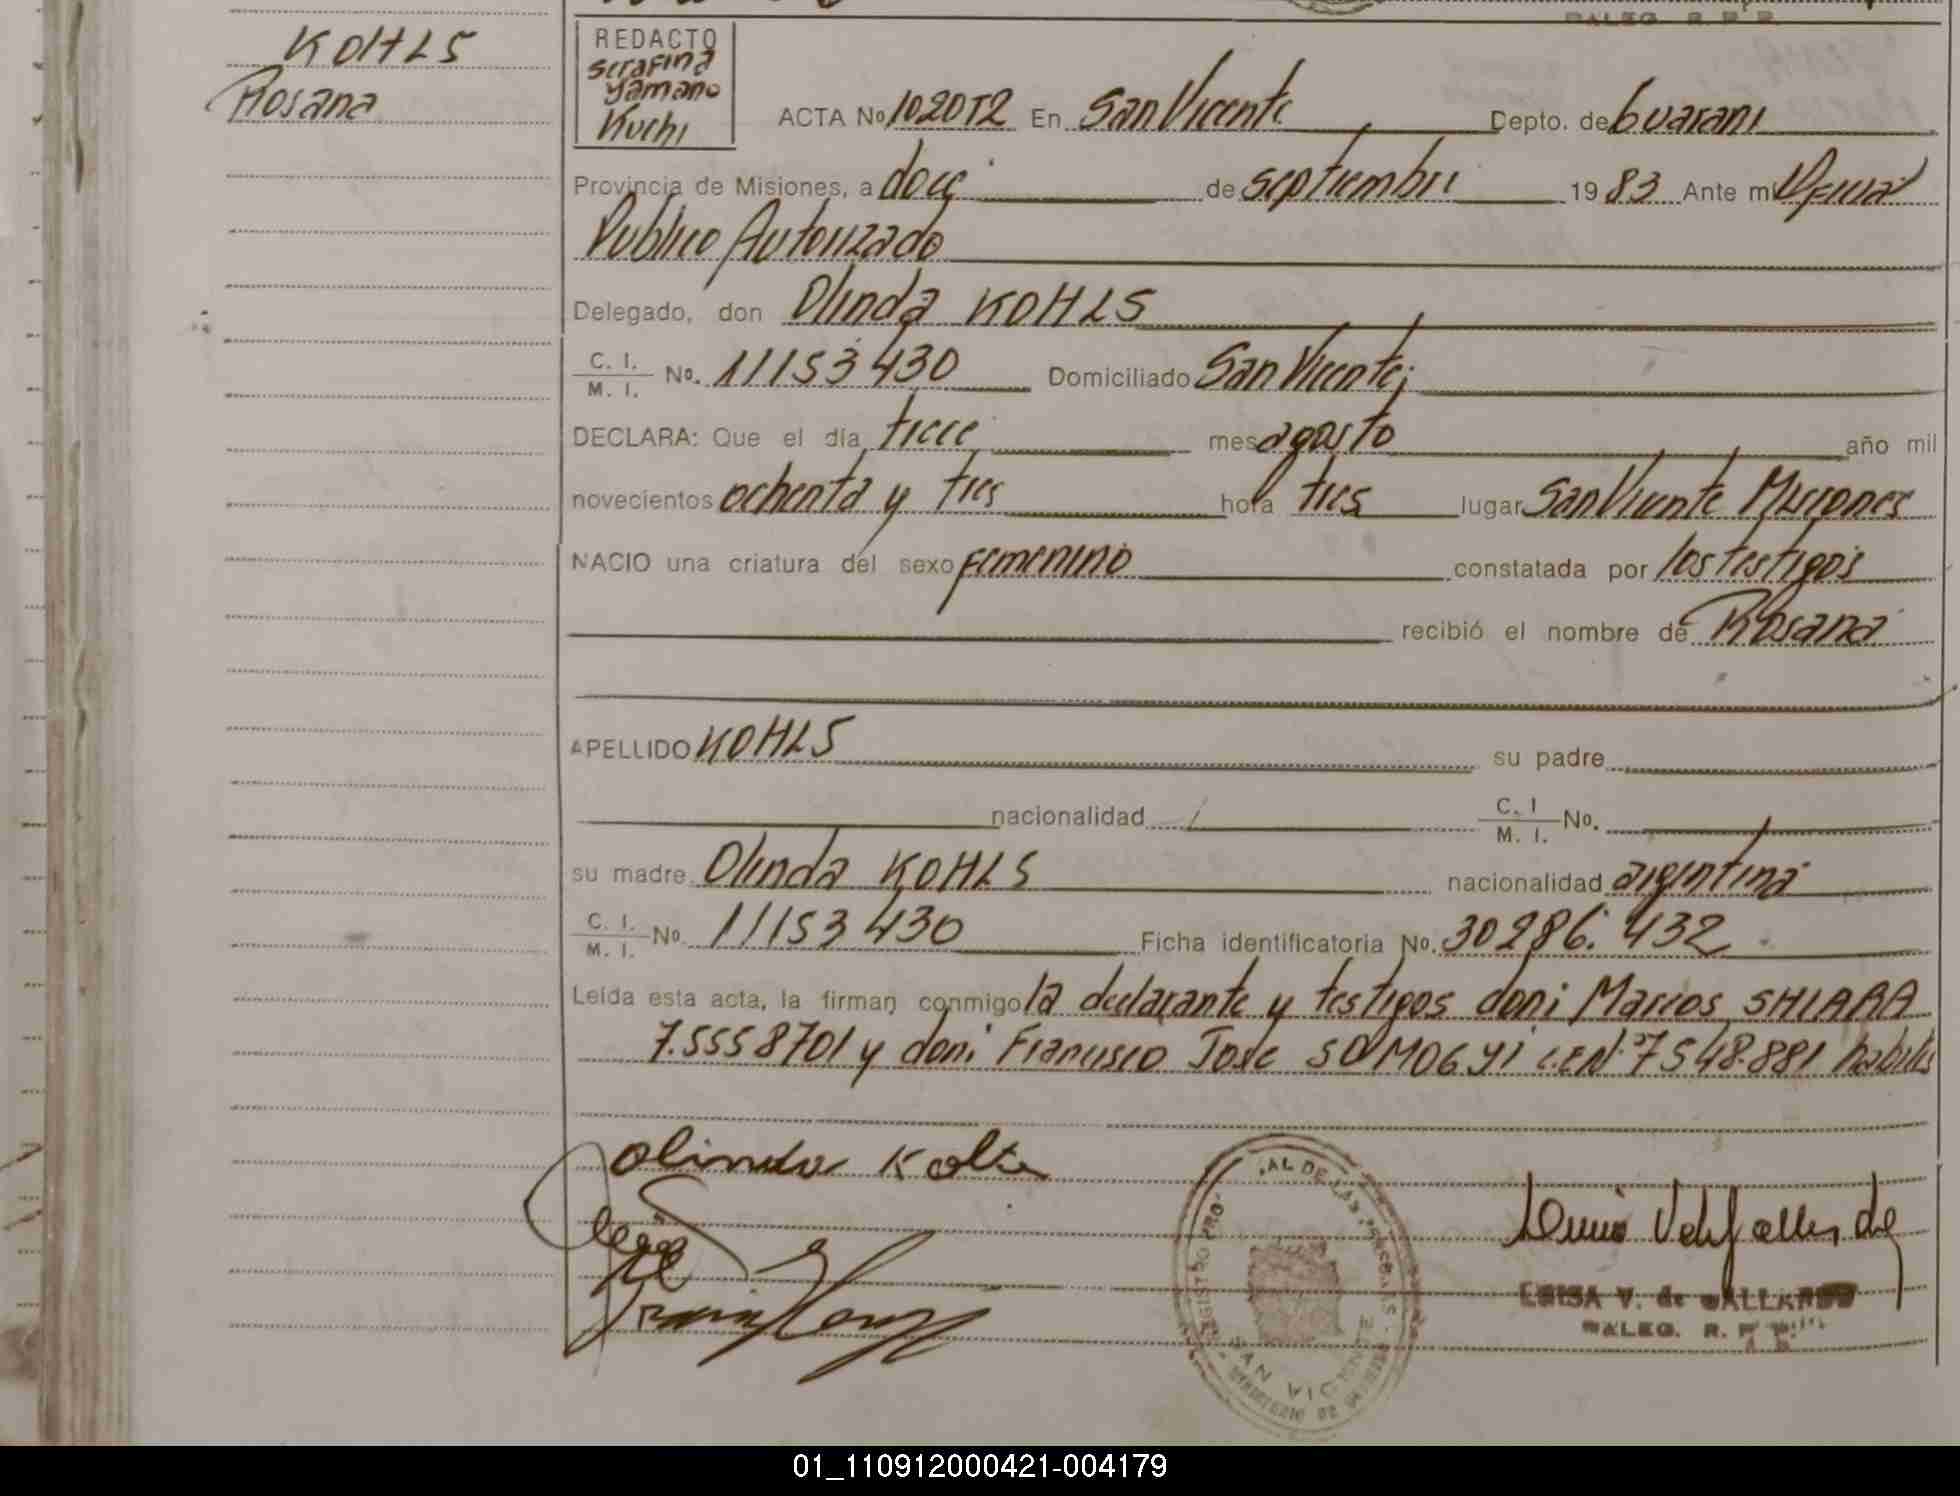 KOHLS
Rosana
REDACTO
Serafina
Yamano
Kuchi
ACTA No 1020T2 En San Vicente Depto. de Guarani
Provincia de Misiones, a doce de septiembre 1983 Ante mi Oficial
Publico Autorizado
Delegado, don Olinda KOHLS
C. I. / M. I. No. 11153430 Domiciliado San Vicente;
DECLARA: Que el día trece mes agosto año mil
novecientos ochenta y tres hora tres lugar San Vicente Misiones
NACIO una criatura del sexo femenino constatada por los testigos
recibió el nombre de Rosana
APELLIDO KOHLS su padre
nacionalidad C. I / M. I. No.
su madre Olinda KOHLS nacionalidad argentina
C. I. / M. I. No. 11153430 Ficha identificatoria No. 30286.432
Leída esta acta, la firman conmigo la declarante y testigos don; Marcos SHIARA
7.5558701 y don; Francisco Jose SOMOGYI 7548.881 habiles
Olinda
SAN VICENTE
LUISA V. de GALLARDO
01_110912000421-004179